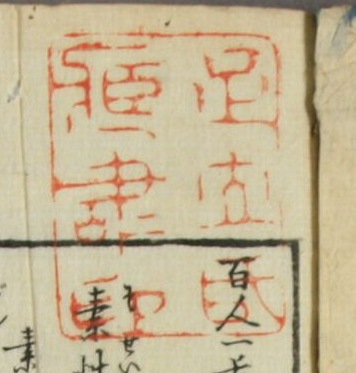 足立氏
藏書印
百人一
そせい
素性
素